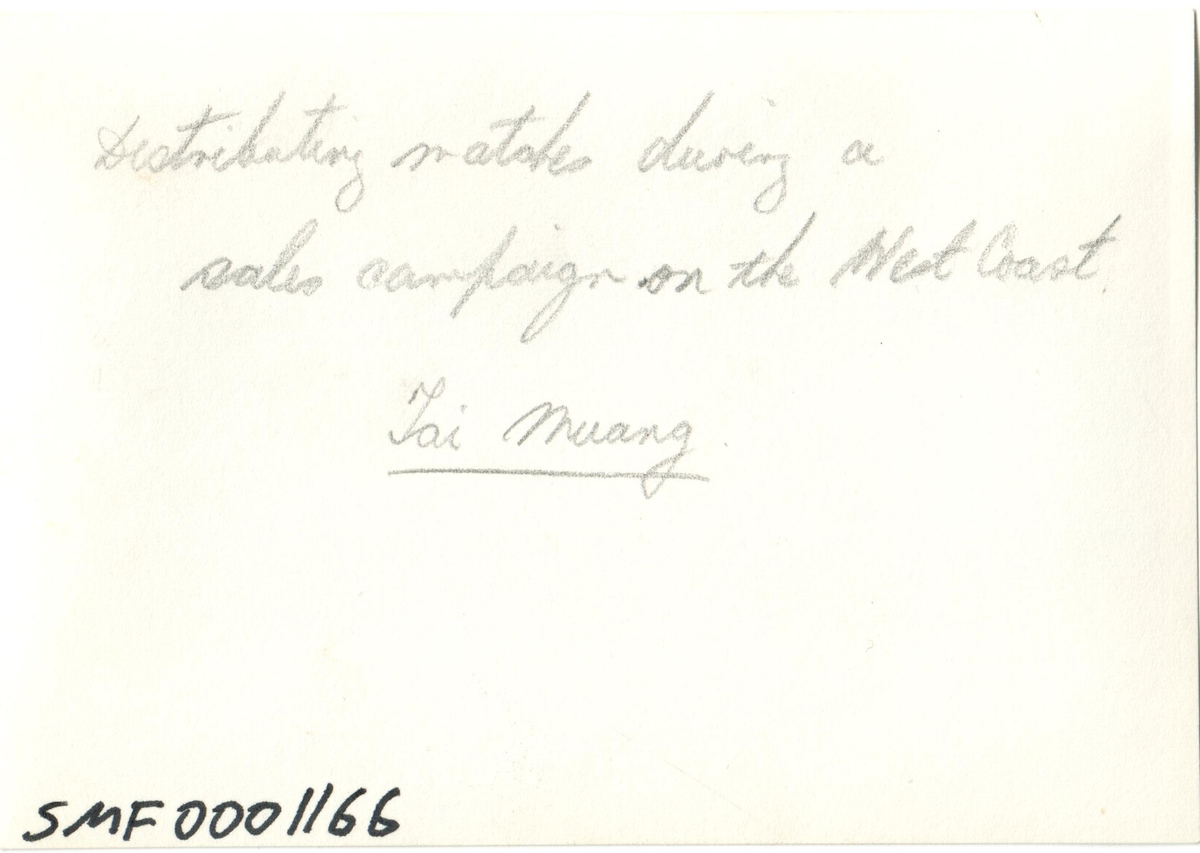 Distributing matches during a
sales campaign on the West Coast.
Tai Muang
SMF0001166